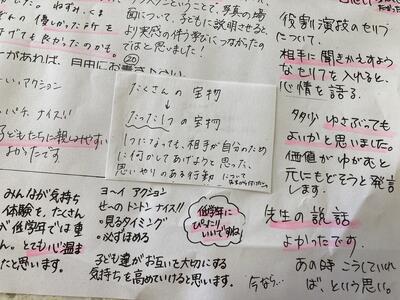 面について、子どもに説明させると
より実感の伴う学びにつながったの
ではと思いました!
⑳
もっても良かったのかも
があれば、自由にお書きください
アクション
ナイス!!
子どもたちに親しみやすい
よかったです
みんなが気持ち
体験を、たくさん
が低学年では重
ん。とても心温ま
たと思います。
たくさんの宝物
↓
たった1つの宝物
1つになっても、相手が自分のため
に何かしてあげようと思った、
思いやりのある行動について
ヨーヘイ アクション
せーの トントン ナイス!!
・見るタイミング
・必ずほめる
低学年に
ぴったりで
いいですね
子ども達がお互いを大切にする
気持ちを高めていけると思います。
役割演技のセリフ
について。
相手に聞きかえすよう
なセリフを入れると、
心情を語る。
多少ゆさぶっても
よいかと思いました。
価値がゆがむと
元にもどそうと発言
します。
先生の説話
よかったです。
あの時こうしていれ
ば、という思い。
今なら…